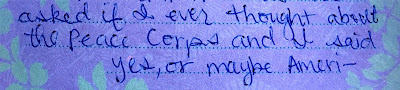 asked if I ever thought about
the Peace Corps and I said
yes, or maybe Ameri-